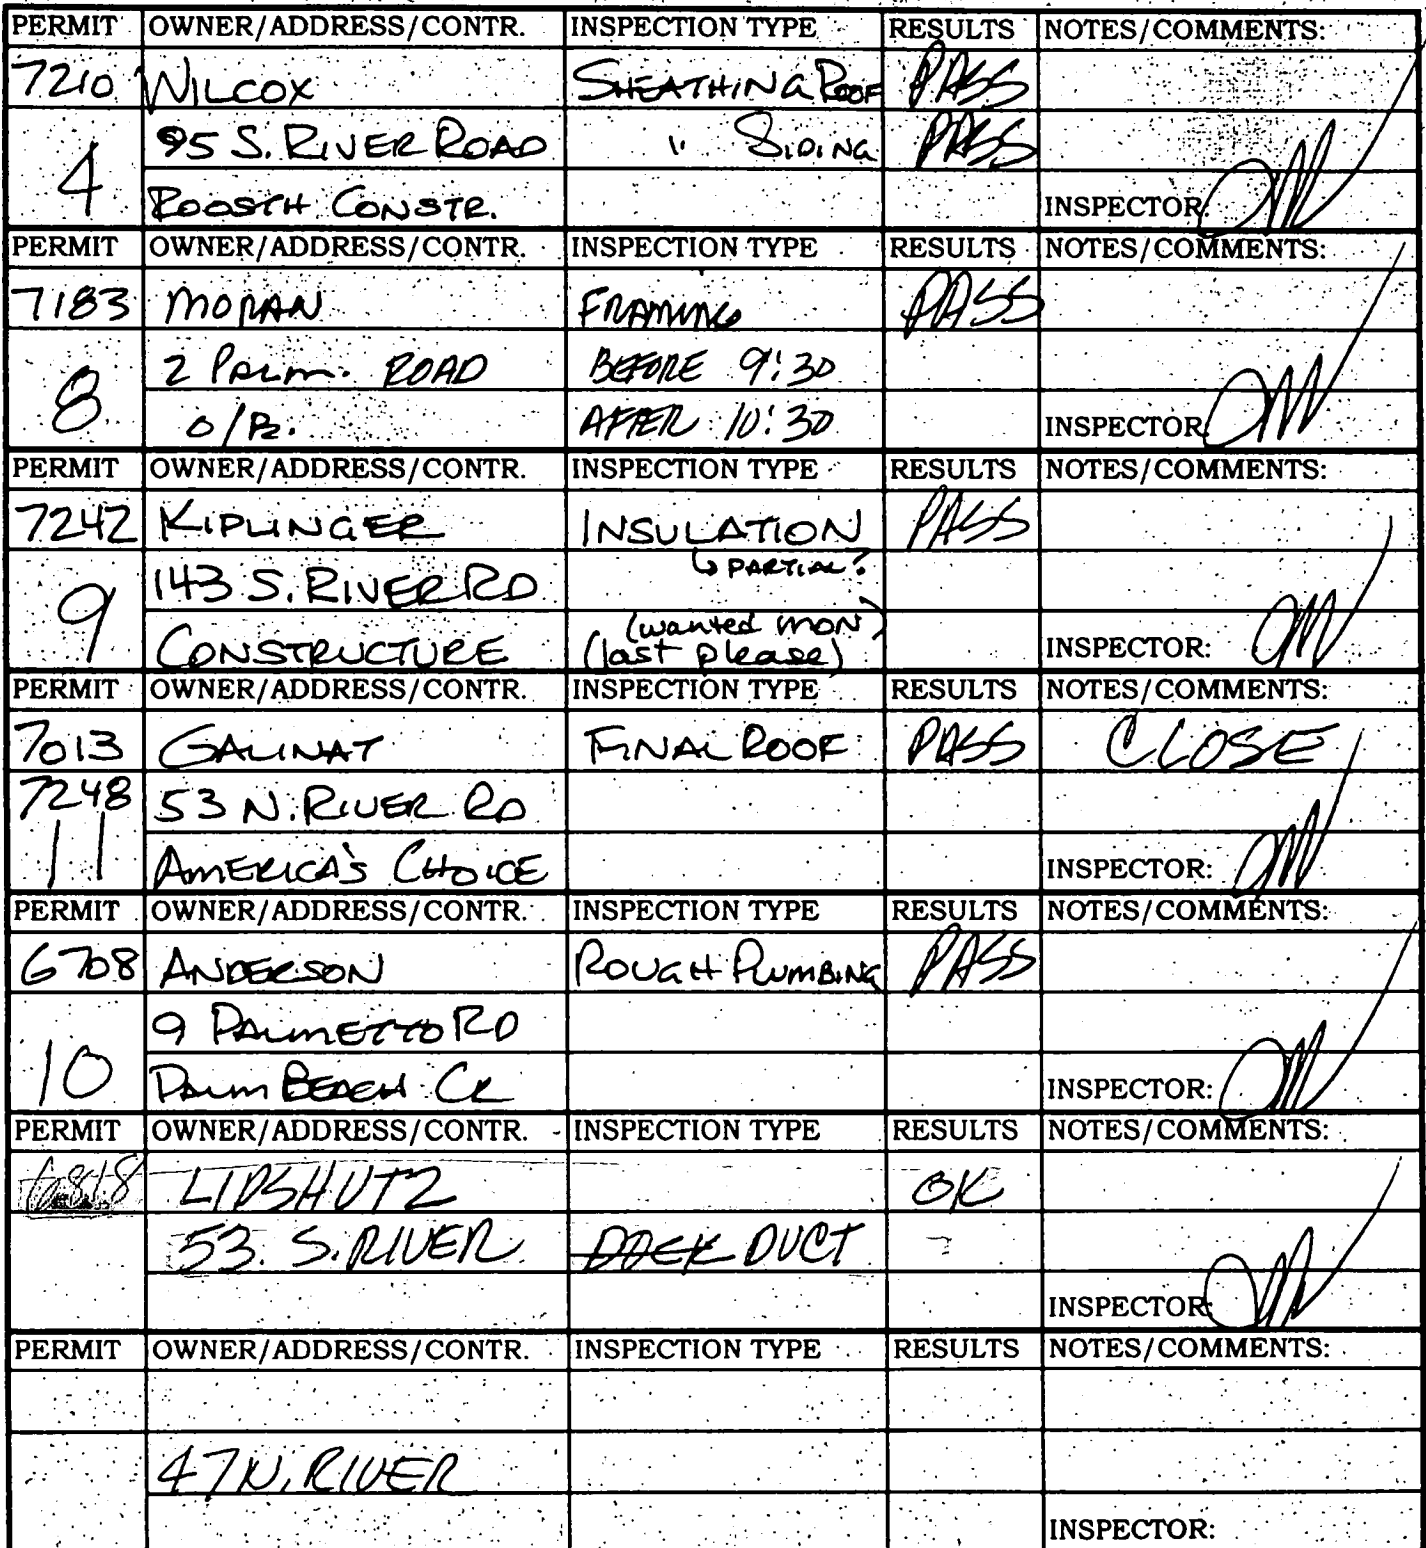 PERMIT OWNER/ADDRESS/CONTR. INSPECTION TYPE RESULTS NOTES/COMMENTS:
7210 WILCOX SHEATHING ROOF PASS
4 95 S. RIVER ROAD " SIDING PASS
ROOSTH CONSTR. INSPECTOR:
PERMIT OWNER/ADDRESS/CONTR. INSPECTION TYPE RESULTS NOTES/COMMENTS:
7183 MORAN FRAMING PASS
8 2 PALM. ROAD BEFORE 9:30
O/B. AFTER 10:30 INSPECTOR:
PERMIT OWNER/ADDRESS/CONTR. INSPECTION TYPE RESULTS NOTES/COMMENTS:
7242 KIPLINGER INSULATION PASS
↳ PARTIAL?
9 143 S. RIVER RD
(wanted MON)
CONSTRUCTURE (last please) INSPECTOR:
PERMIT OWNER/ADDRESS/CONTR. INSPECTION TYPE RESULTS NOTES/COMMENTS:
7013 GALINAT FINAL ROOF PASS CLOSE
7248 53 N. RIVER RD
11 AMERICA'S CHOICE INSPECTOR:
PERMIT OWNER/ADDRESS/CONTR. INSPECTION TYPE RESULTS NOTES/COMMENTS:
6708 ANDERSON ROUGH PLUMBING PASS
9 PALMETTO RD
10 PALM BEACH CR INSPECTOR:
PERMIT OWNER/ADDRESS/CONTR. INSPECTION TYPE RESULTS NOTES/COMMENTS:
6818 LIPSHUTZ OK
53. S. RIVER DOCK DUCT
INSPECTOR:
PERMIT OWNER/ADDRESS/CONTR. INSPECTION TYPE RESULTS NOTES/COMMENTS:
47 N. RIVER
INSPECTOR: